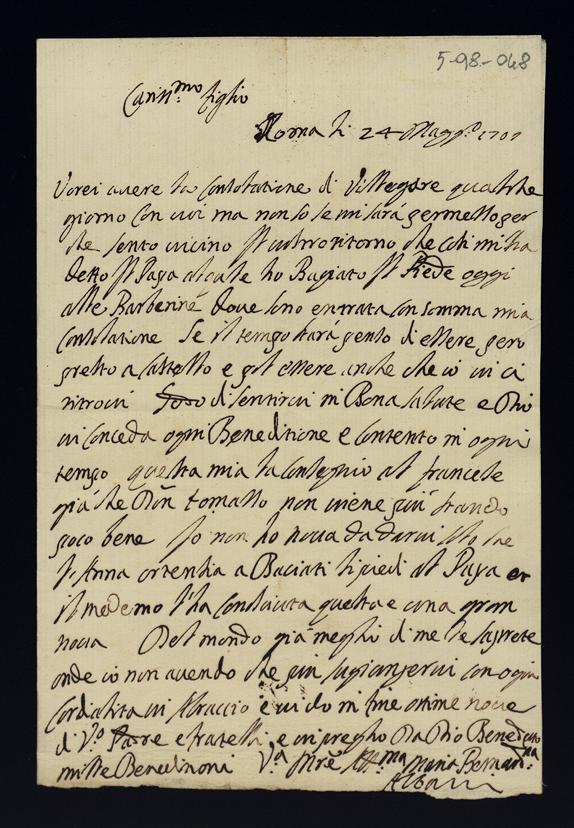 5-98-048
Cariss.mo figlio
Roma li 24 Magg.o
Vorei avere la consolatione di Villegare qualche
giorno con voi ma non so se mi sará permesso per
che sento vicino il vostro ritorno che cosi mi ha
detto il Papa al quale ho Bagiato il Piede oggi
alle Barberine dove sono entrata con somma mia
consolatione Se il tempo stará penso di essere pero
presto a Castello e pol essere anche che io vi ci
ritrovi Godo di sentirvi in Bona salute e Dio
vi conceda ogni Beneditione e contento in ogni
tempo questa mia la consegnio al francese
giá che Don tomasso non viene piú stando
poco bene Io non ho nova da darvi solo che
S. Anna ortensia a Baciati li piedi al Papa et
il medemo l'ha condoluta questa e una gran
nova Del mondo giá meglii di me le saprete
onde io non avendo che piu sugiongervi con ogni
Cordialita vi Abraccio e vi do in fine ottime nove
di V.o Padre e fratelli, e vi prego Da Dio Benedetto
mille Beneditioni V.a Mre Aff.ma Maria Bernard.na
Albani